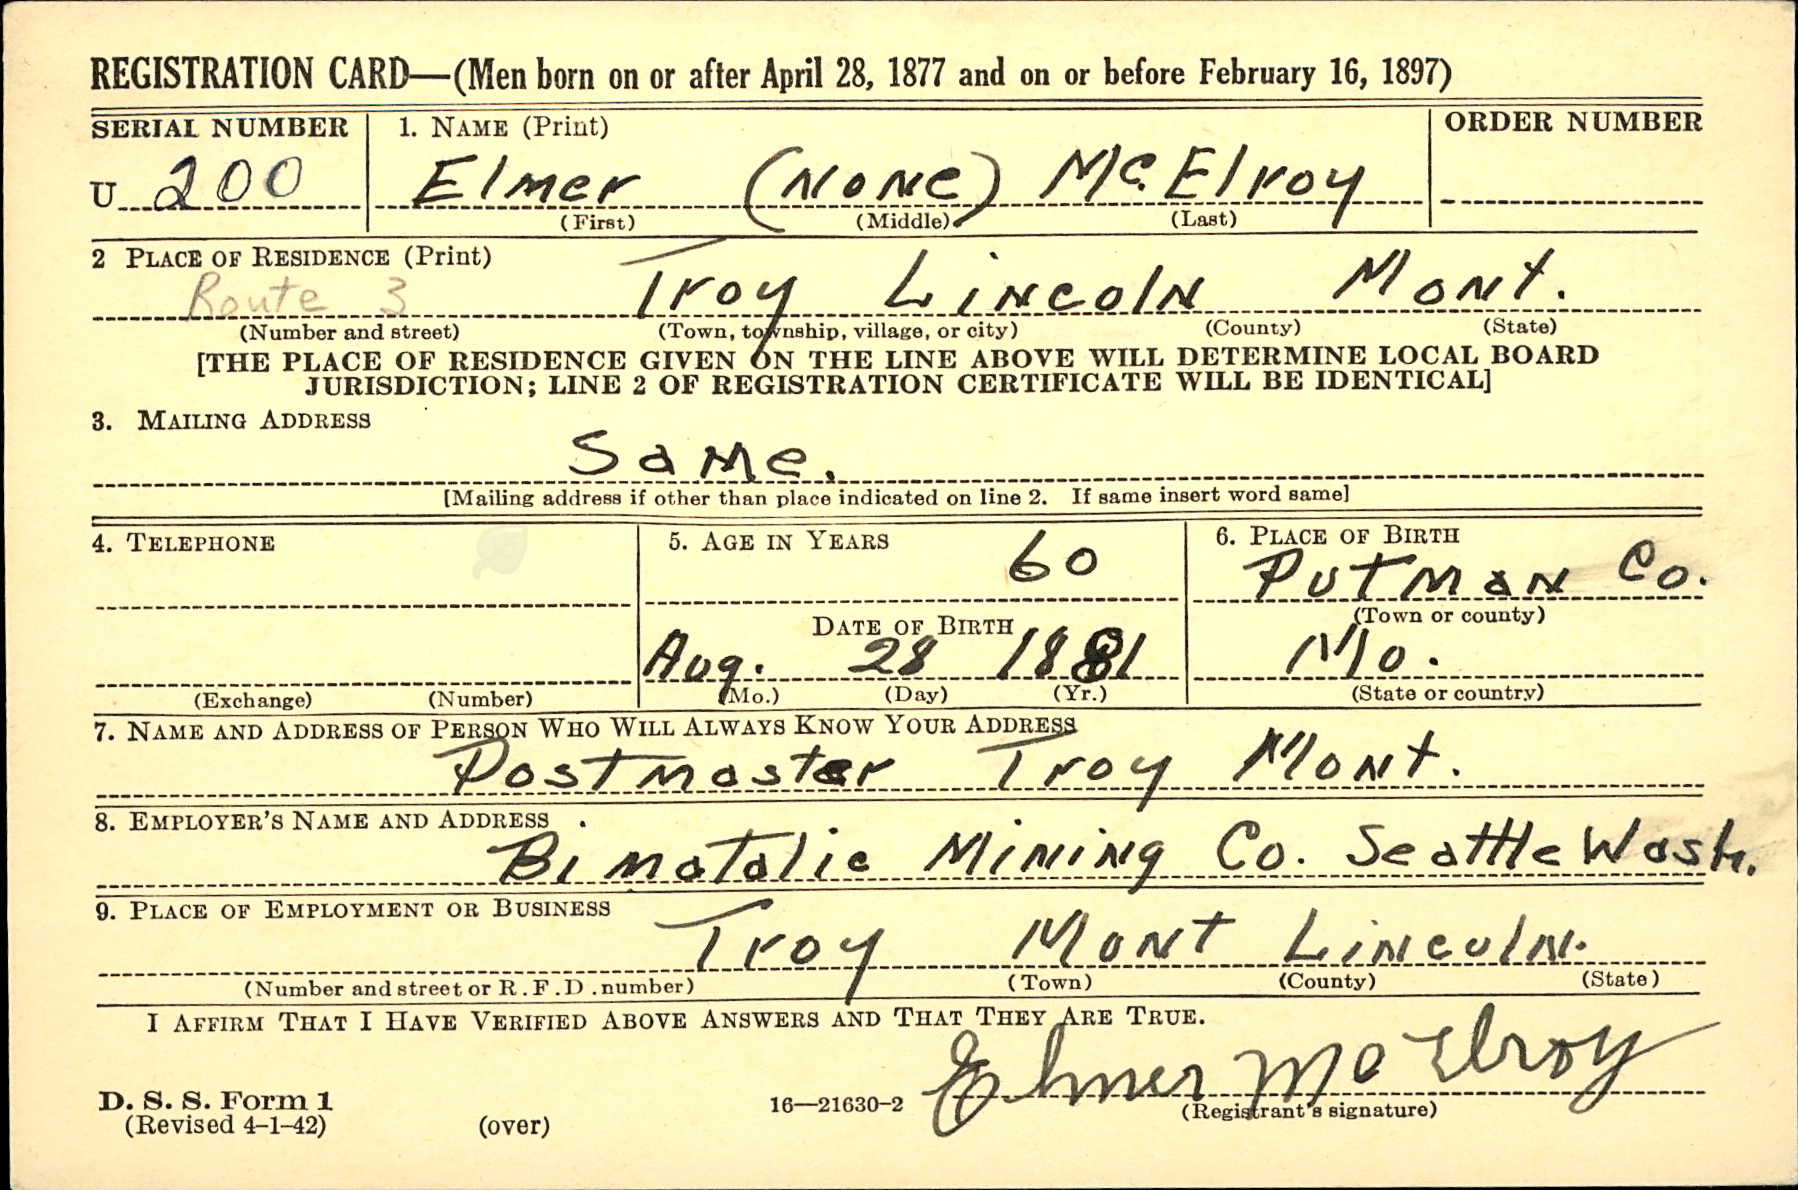 REGISTRATION CARD—(Men born on or after April 28, 1877 and on or before February 16, 1897)
SERIAL NUMBER 1. NAME (Print) ORDER NUMBER
U 200 Elmer (None) McElroy
(First) (Middle) (Last)
2 PLACE OF RESIDENCE (Print)
Route 3 Troy Lincoln Mont.
(Number and street) (Town, township, village, or city) (County) (State)
[THE PLACE OF RESIDENCE GIVEN ON THE LINE ABOVE WILL DETERMINE LOCAL BOARD
JURISDICTION; LINE 2 OF REGISTRATION CERTIFICATE WILL BE IDENTICAL]
3. MAILING ADDRESS
Same.
[Mailing address if other than place indicated on line 2. If same insert word same]
4. TELEPHONE 5. AGE IN YEARS 6. PLACE OF BIRTH
60 Putman Co.
DATE OF BIRTH (Town or county)
Aug. 28 1881 Mo.
(Exchange) (Number) (Mo.) (Day) (Yr.) (State or country)
7. NAME AND ADDRESS OF PERSON WHO WILL ALWAYS KNOW YOUR ADDRESS
Postmaster Troy Mont.
8. EMPLOYER'S NAME AND ADDRESS
Bi matalic Mining Co. Seattle Wash.
9. PLACE OF EMPLOYMENT OR BUSINESS
Troy Mont Lincoln.
(Number and street or R.F.D. number) (Town) (County) (State)
I AFFIRM THAT I HAVE VERIFIED ABOVE ANSWERS AND THAT THEY ARE TRUE.
Elmer McElroy
D. S. S. Form 1 16—21630-2 (Registrant's signature)
(Revised 4-1-42) (over)